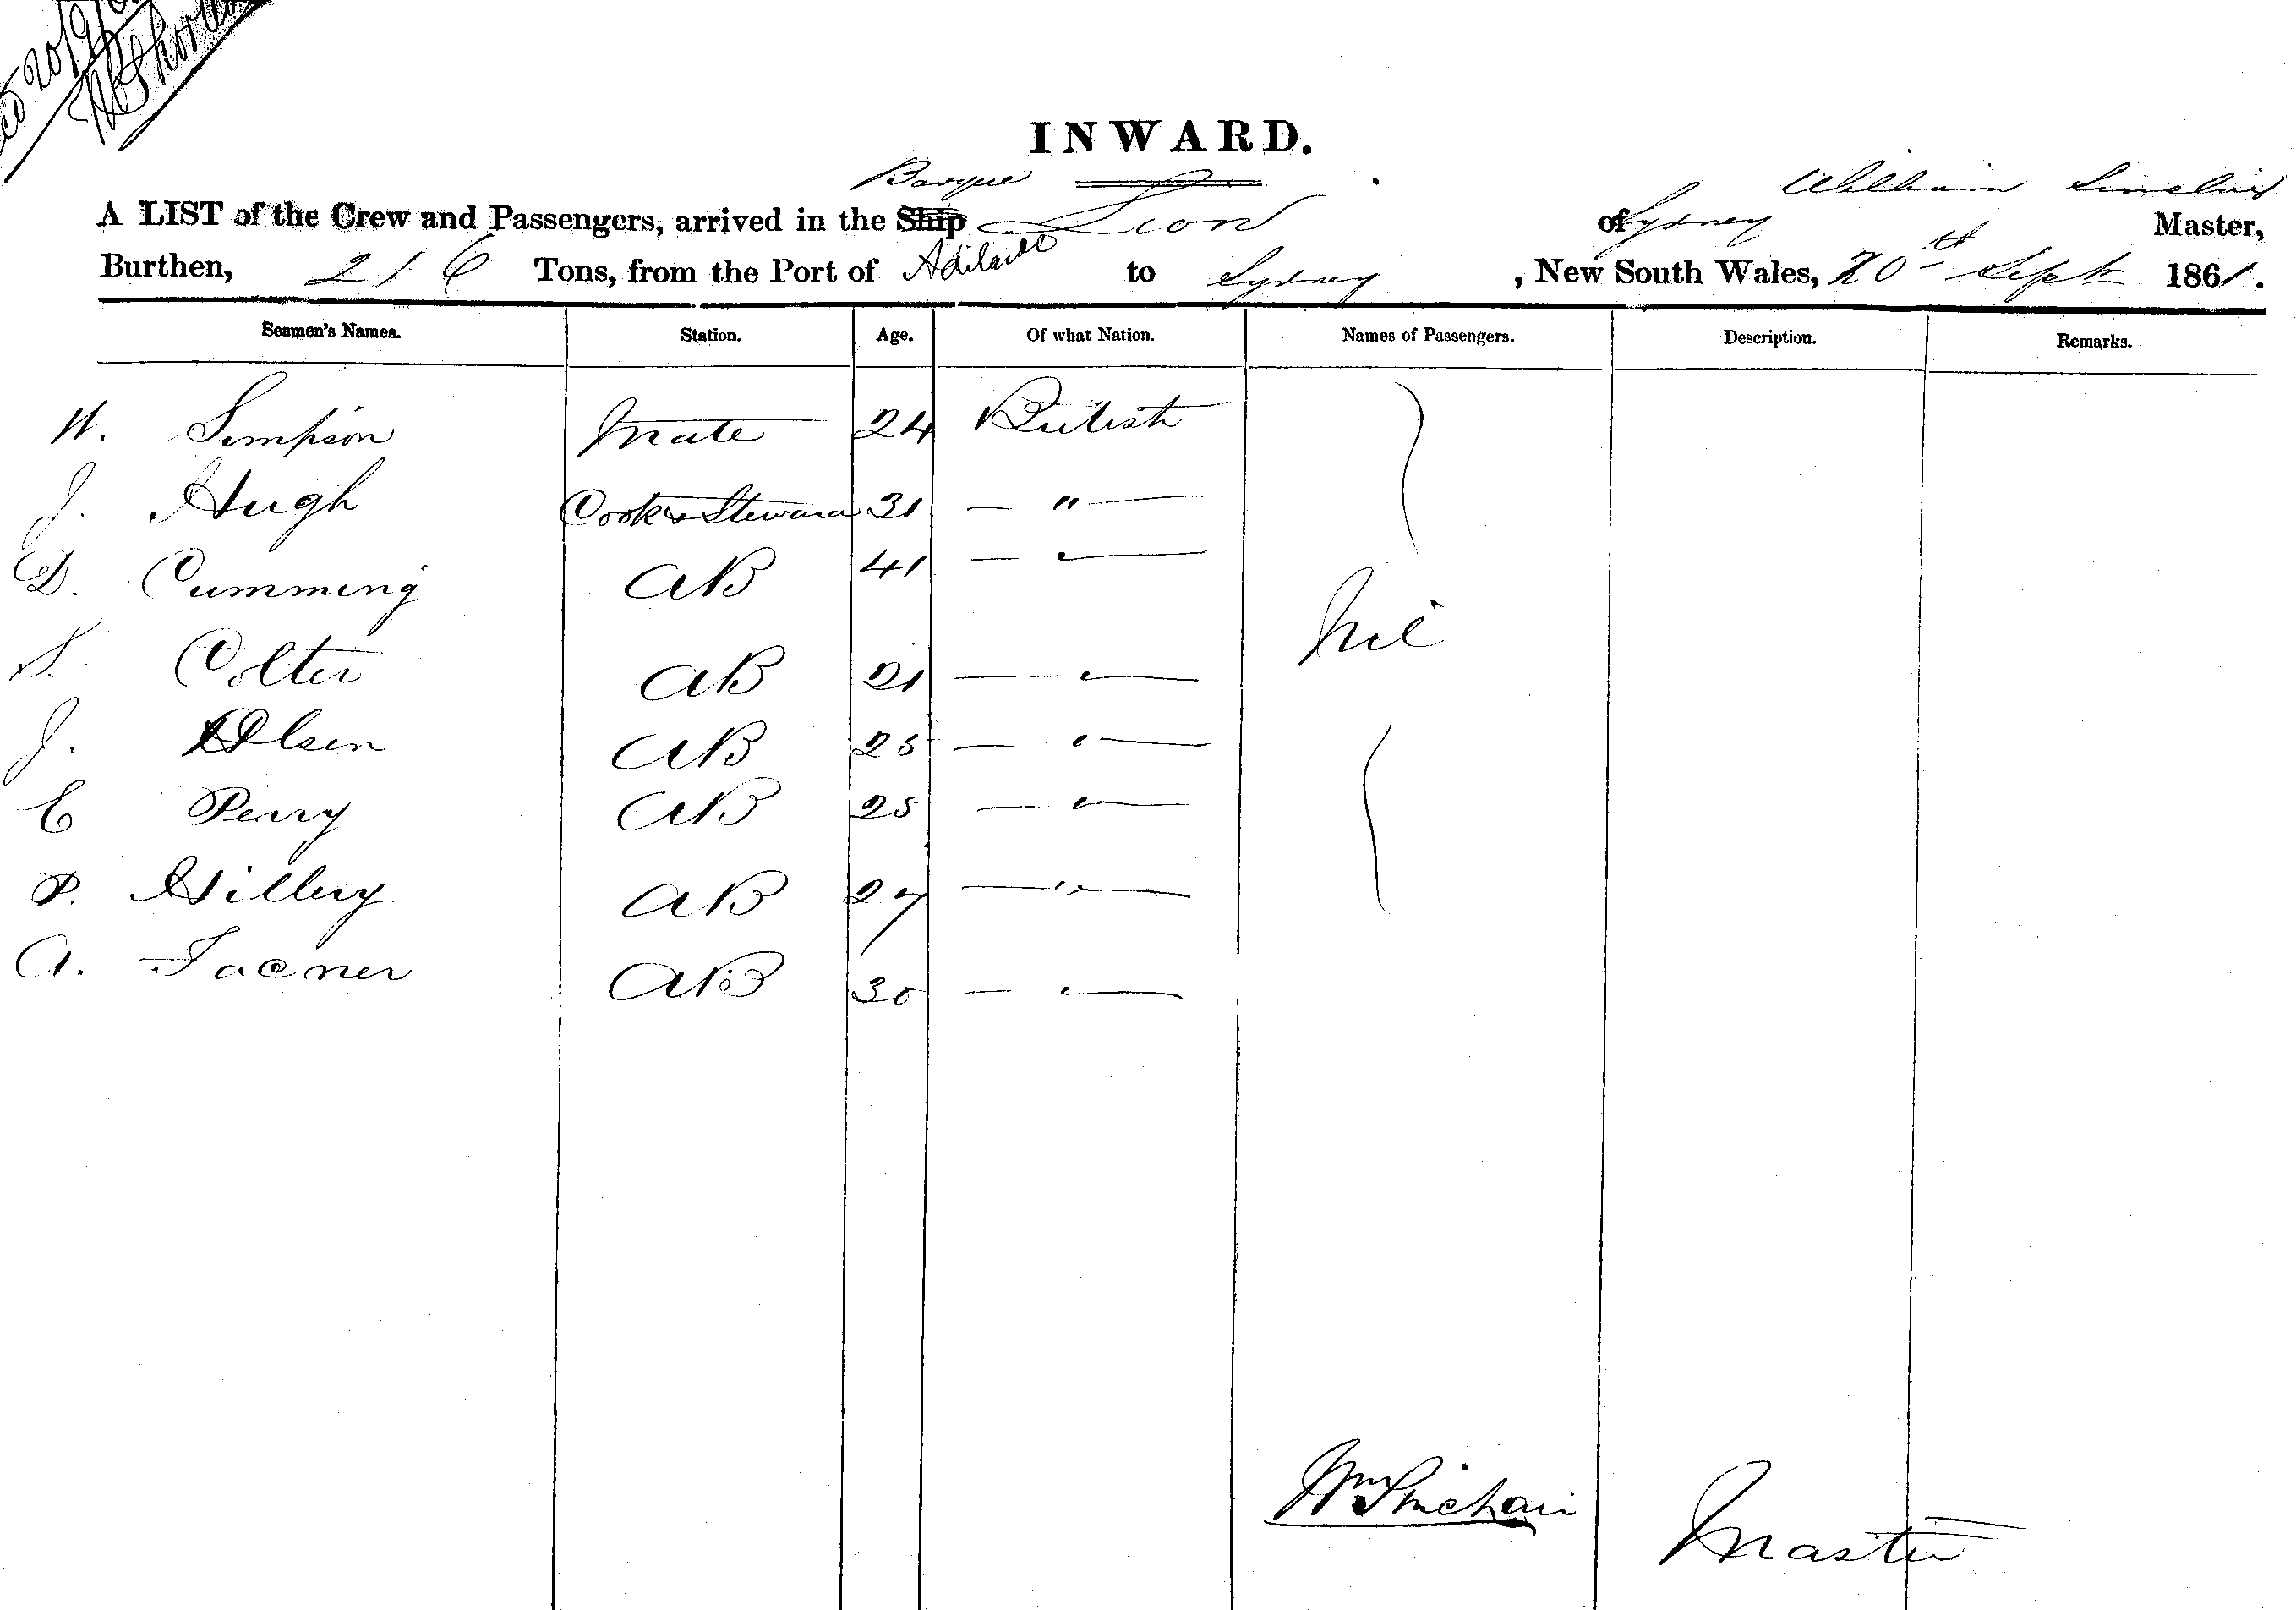 20/9/6
INWARD.
Barque William Sinclair
A LIST of the Crew and Passengers, arrived in the Ship Lion of Sydney Master,
Burthen, 216 Tons, from the Port of Adilaide to Sydney, New South Wales, 20th Sept 1861.
Seamen's Names. Station. Age. Of what Nation. Names of Passengers. Description. Remarks.
W. Simpson Mate 24 British
J. Hugh Cook & Steward 31 — " —
D. Cumming AB 41 — " —
Nil
S. Colter AB 21 — " —
J. Olsen AB 25 — " —
E Perry AB 25 — " —
P. Hillery AB 27 — " —
A. AB 30 — " —
Wm Sinclair
Master